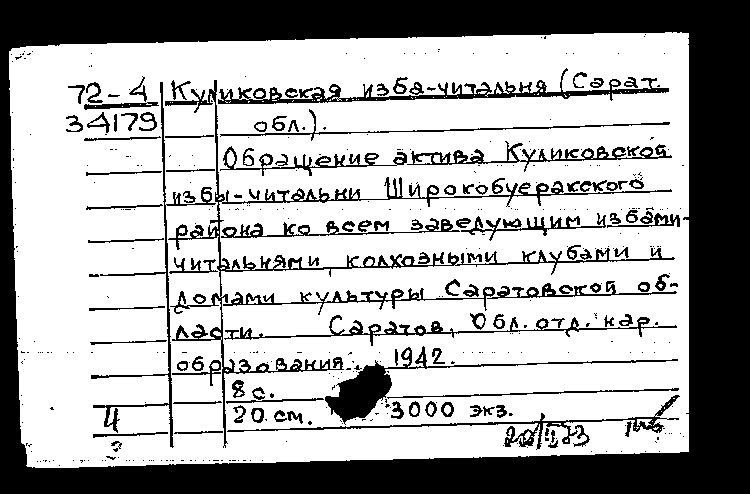 72-4 Куликовская изба-читальня (Сарат.
34179 обл.).
Обращение актива Куликовской
избы-читальни Широкобуеракского
района ко всем заведующим избами-
читальнями, колхозными клубами и
домами культуры Саратовской об-
ласти. Саратов, Обл. отд. нар.
образования. 1942.
8 с.
4 20 см. 3000 экз.